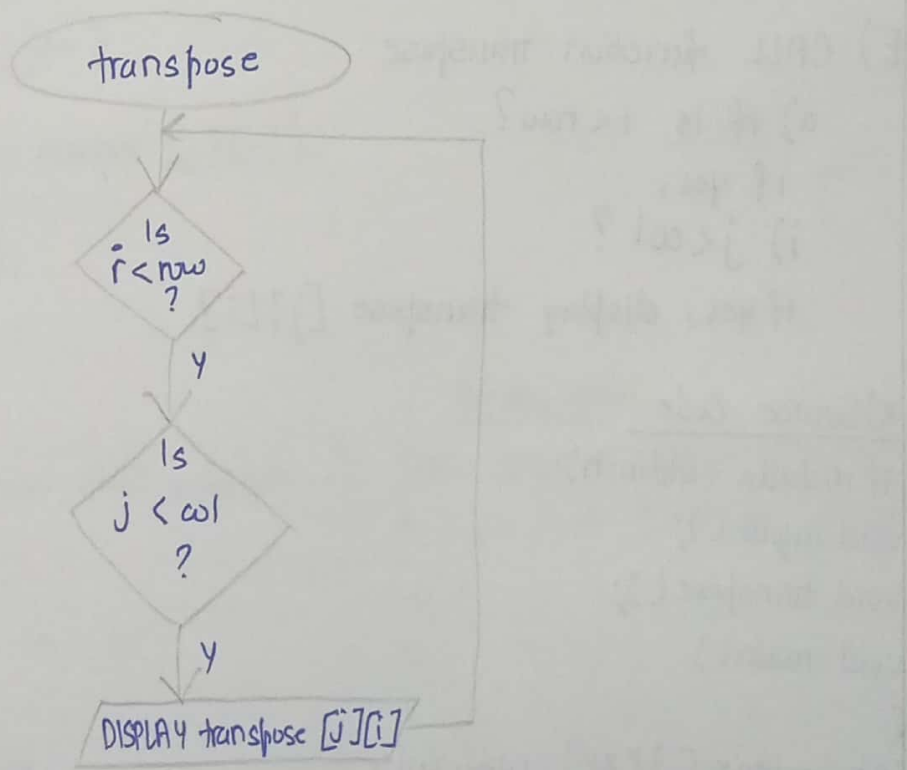 transpose
Is
i<row
?
Y
Is
j < col
?
Y
DISPLAY transpose [j][i]